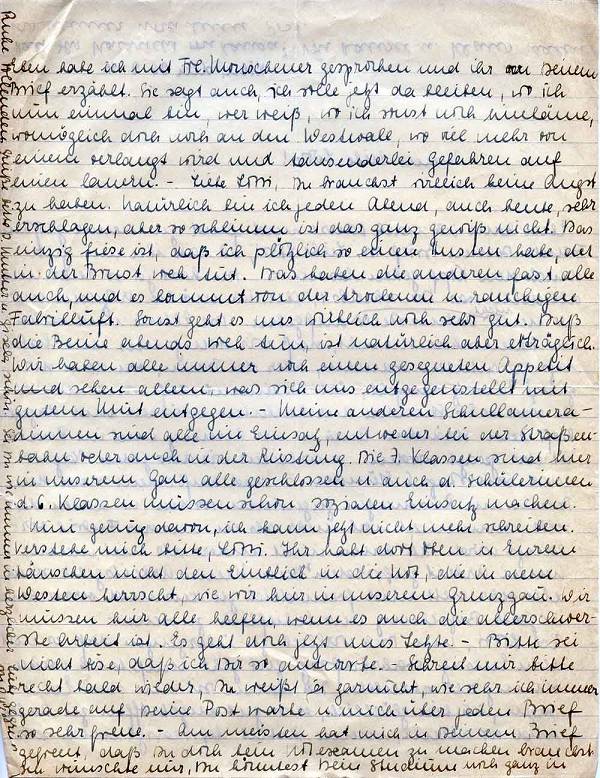 Eben habe ich mit Frl. gesprochen und ihr von Deinem
Brief erzählt. Sie sagt auch, ich solle jetzt da bleiben, wo ich
nun einmal bin, wer weiß, wo ich sonst noch hinkäme,
womöglich doch noch an den Westwall, wo viel mehr von
einem verlangt wird und tausenderlei Gefahren auf
einen lauern. – Liebe Lotti, Du brauchst wirklich keine Angst
zu haben. Natürlich bin ich jeden Abend, auch heute, sehr
erschlagen, aber so schlimm ist das ganz gewiß nicht. Das
einzig fiese ist, daß ich plötzlich so einen Husten habe, der
in der Brust weh tut. Das haben die anderen fast alle
auch, und es kommt von der trockenen u. rauchigen
Fabrikluft. Sonst geht es uns wirklich noch sehr gut. Daß
die Beine abends weh tun, ist natürlich aber erträglich.
Wir haben alle immer noch einen gesegneten Appetit
und sehen allem, was sich uns entgegenstellt mit
gutem Mut entgegen. – Meine anderen Schulkamera-
dinnen sind alle im Einsatz, entweder bei der Straßen-
bahn oder auch in der Rüstung. Die 7. Klassen sind hier
in unserem Gau alle geschlossen u. auch d. Schülerinnen
d. 6. Klassen müssen schon sozialen Einsatz machen.
Nun genug davon, ich kann jetzt nicht mehr schreiben.
Verstehe mich bitte, Lotti. Ihr habt dort oben in Eurem
Häuschen nicht den Einblick in die Not, die in dem
Westen herrscht, wie wir hier in unserem Grenzgau. Wir
müssen hier alle helfen, wenn es auch die allerschwer-
ste Arbeit ist. Es geht doch jetzt ums Letzte. – Bitte sei
nicht böse, daß ich Dir so antworte. – Schreib mir bitte
recht bald wieder, Du weißt ja garnicht, wie sehr ich immer
gerade auf Deine Post warte u. mich über jeden Brief
so sehr freue. – Am meisten hat mich in Deinem Brief
gefreut, daß Du doch kein Notexamen zu machen brauchst.
Ich wünschte nur, Du könntest Dein Studium noch ganz in
Ruhe vollenden.